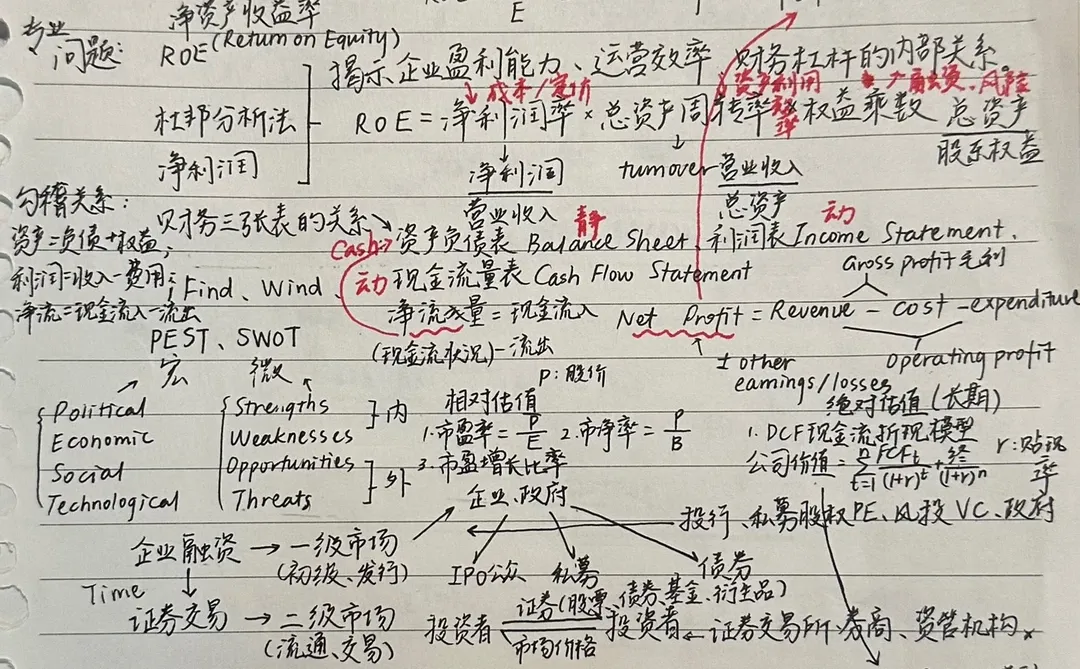 E
专业
问题:
净资产收益率
ROE (Return on Equity)
杜邦分析法
净利润
揭示企业盈利能力、运营效率 财务杠杆的内部关系。
成本/定价
资产利用效率
融资、风险
ROE = 净利润率 × 总资产周转率 × 权益乘数 总资产
股东权益
净利润
营业收入
turnover 营业收入
总资产
勾稽关系:
资产=负债+权益;
利润=收入-费用;
净流=现金流入-流出
财务三张表的关系
Cash 资产负债表 Balance Sheet 静
利润表 Income Statement. 动
动 现金流量表 Cash Flow Statement
净流量 = 现金流入
(现金流状况) - 流出
Find、Wind、
Gross profit 毛利
Net Profit = Revenue - cost - expenditure
± other
earnings/losses
operating profit
PEST、SWOT
宏 微
Political
Economic
Social
Technological
Strengths
Weaknesses
内
Opportunities
Threats
外
P: 股价
相对估值
1. 市盈率 = P/E 2. 市净率 = P/B
3. 市盈增长比率
绝对估值 (长期)
1. DCF现金流折现模型
公司价值 = n Σ t=1 FCFt/(1+r)^t + 终/(1+r)^n
r: 贴现率
企业、政府
投行、私募股权PE、风投VC、政府
企业融资 → 一级市场
(初级、发行)
IPO公众 私募 债券
Time
证券交易 → 二级市场
(流通、交易)
证券(股票、债券、基金、衍生品)
投资者 投资者
市场价格
证券交易所、券商、资管机构